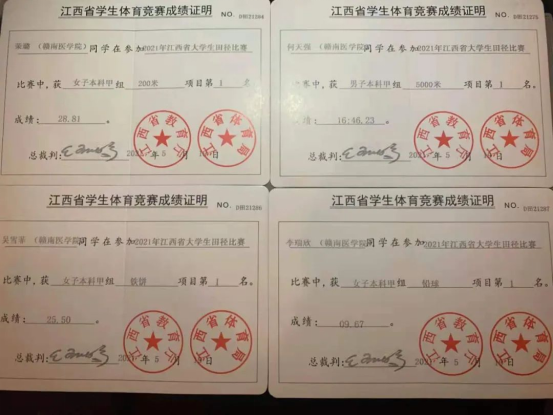 江西省学生体育竞赛成绩证明 NO. DH21284
(赣南医学院)同学在参加2021年江西省大学生田径比赛
比赛中,获 女子本科甲 组 200米 项目第 1 名。
成绩: 28.81 。
总裁判: 年 5
江西省教育厅
江西省体育局
江西省学生体育竞赛成绩证明 NO.
何天强 (赣南医学院)同学在参加2021年江西省大学生田径比赛
比赛中,获 男子本科甲 组 5000米 项目第 1 名。
成绩: 16:46.23 。
总裁判: 年 5
江西省教育厅
江西省体育局
江西省学生体育竞赛成绩证明 NO. DH21286
吴雪菲 (赣南医学院)同学在参加2021年江西省大学生田径比赛
比赛中,获 女子本科甲 组 铁饼 项目第 1 名。
成绩: 25.50 。
总裁判: 年 5
江西省教育厅
江西省体育局
江西省学生体育竞赛成绩证明 NO. DH21287
李瑞欣 (赣南医学院)同学在参加2021年江西省大学生田径比赛
比赛中,获 女子本科甲 组 铅球 项目第 1 名。
成绩: 09.67 。
总裁判: 年 5
江西省教育厅
江西省体育局